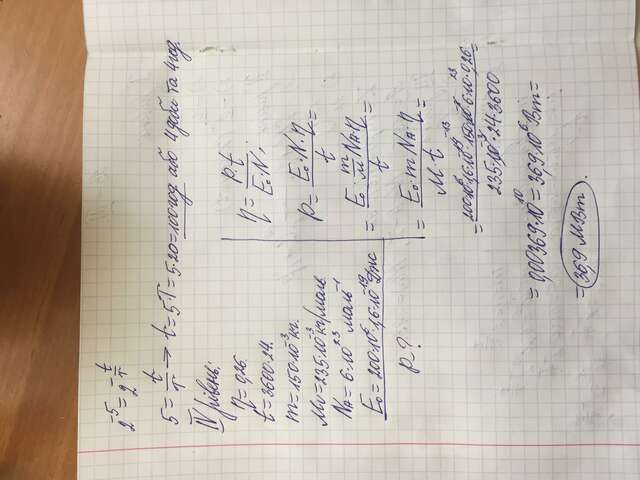 2^-5 = 2^-t/T
5 = t/T → t = 5T = 5·20 = 100 год або 4 доби та 4 год.
IV рівень.
η = 0,26.
t = 3600·24.
m = 150·10^-3 кг.
Mu = 235·10^-3 кг/моль
NA = 6·10^23 моль^-1
E0 = 200·10^6·1,6·10^-19 Дж
P?
η = P·t / E0·N;
P = E0·N·η / t =
= E0·m/M NA·η / t =
= E0·m NA·η / M t =
= 200·10^6·1,6·10^-19·150·10^-3·6·10^23·0,26 / 235·10^-3·24·3600 =
= 0,00369·10^10 = 36,9·10^6 Вт =
= 36,9 МВт.